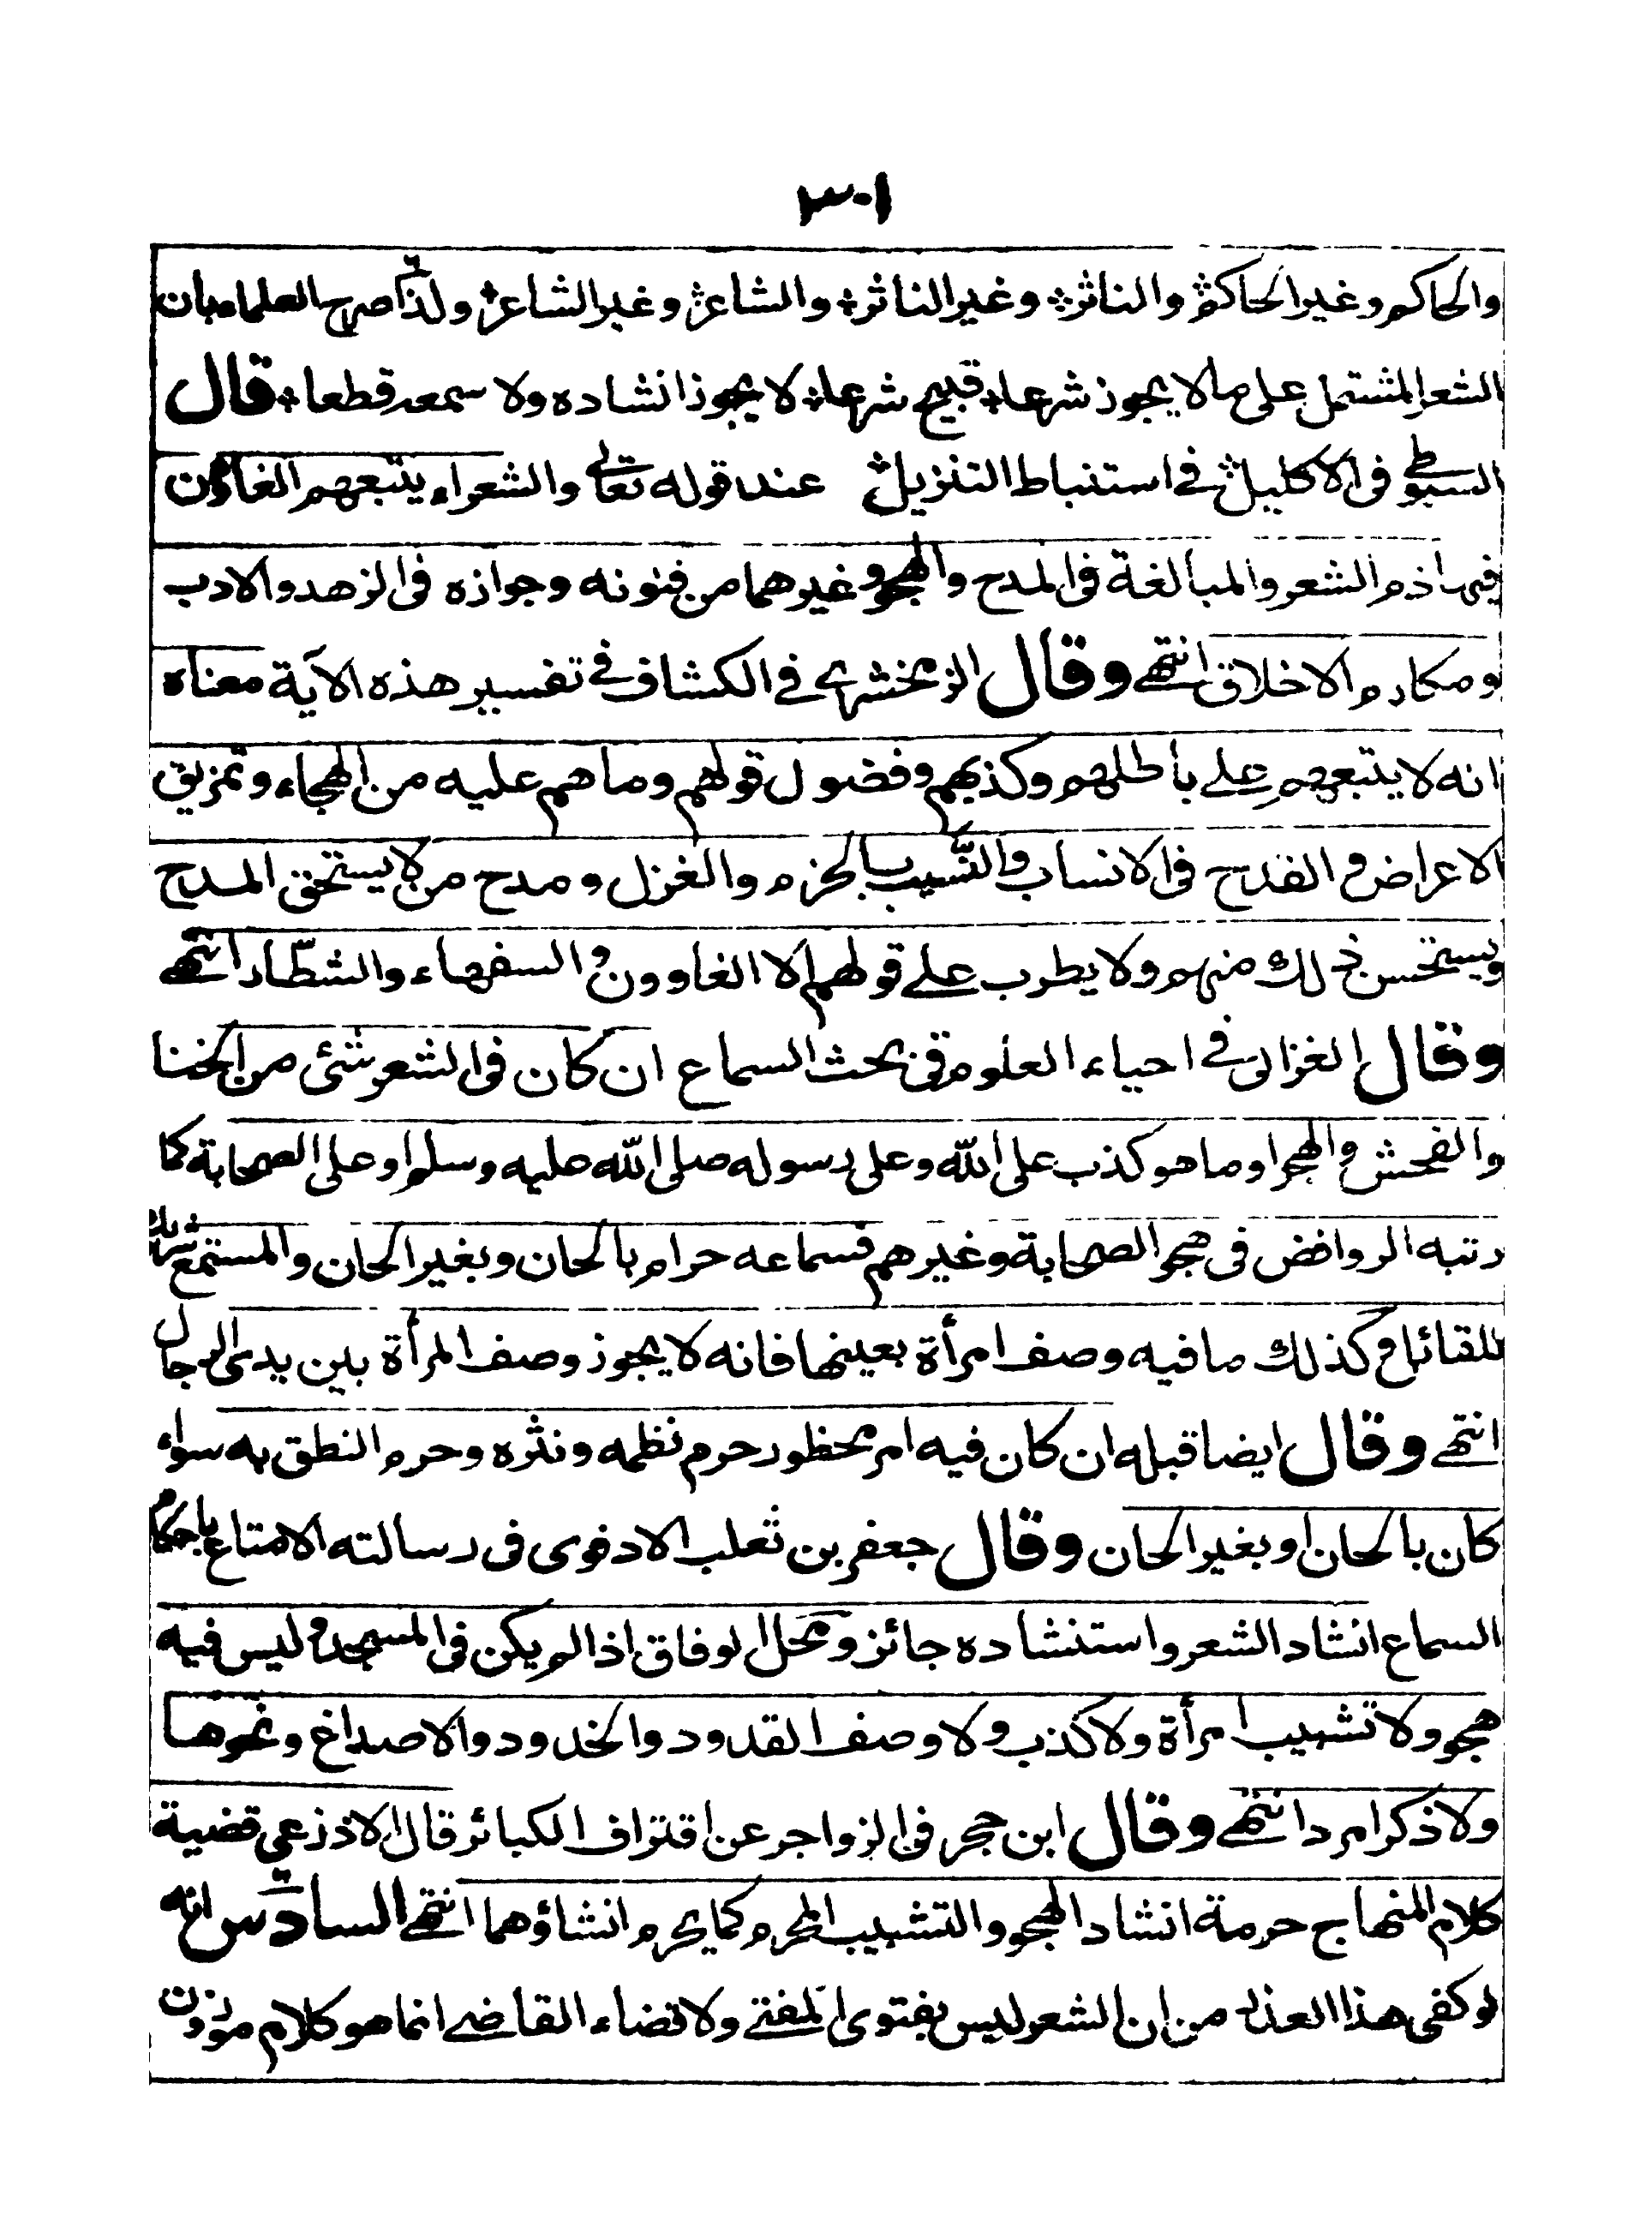 ٣٠١
والحاكم وغير الحاكم؞ والناثر؞ وغير الناثر؞ والشاعر؞ وغير الشاعر؞ ولذا صرح العلماء بان
الشعر المشتمل على ما لا يجوز شرعا؞ قبيح شرعا؞ لا يجوز انشاده ولا سمعه قطعا؞ قال
السيوطي فى الاكليل؞ في استنباط التنزيل؞ عند قوله تعالى والشعراء يتبعهم الغاوون
فيها ذم الشعر والمبالغة فى المدح والهجو وغيرهما من فنونه وجوازه فى الزهد والادب
ومكارم الاخلاق انتهى وقال الزمخشري في الكشاف في تفسير هذه الآية معناه
انه لا يتبعهم على باطلهم وكذبهم وفضول قولهم وما هم عليه من الهجاء وتمزيق
الاعراض والقدح فى الانساب والنسيب بالحزم والغزل ومدح من لا يستحق المدح
ويستحسن ذلك منهم ولا يطرب على قولهم الا الغاوون والسفهاء والشطّار انتهى
وقال الغزالى في احياء العلوم فى بحث السماع ان كان فى الشعر شئى من الخنا
والفحش والهجر او ما هو كذب على الله وعلى رسوله صلى الله عليه وسلم او على الصحابة كما
رتبه الروافض فى هجو الصحابة وغيرهم فسماعه حرام بالحان وبغير الحان والمستمع شريك
للقائل وكذلك ما فيه وصف امرأة بعينها فانه لا يجوز وصف المرأة بين يدى الرجال
انتهى وقال ايضا قبله ان كان فيه امر محظور حرم نظمه ونثره وحرم النطق به سواء
كان بالحان او بغير الحان وقال جعفر بن ثعلب الادفوى فى رسالته الامتاع باحكام
السماع انشاد الشعر واستنشاده جائز ومحل الوفاق اذا لم يكن فى المسجد وليس فيه
هجو ولا تشبيب امرأة ولا كذب ولا وصف القدود والخدود والاصداغ ونحوها
ولا ذكر امرد انتهى وقال ابن حجر فى الزواجر عن اقتراف الكبائر قال الاذرعى قضية
كلام المنهاج حرمة انشاد الهجو والتشبيب المحرم كما يحرم انشاؤهما انتهى السادس انه
لو كفى هذا العذر من ان الشعر ليس بفتوى المفتي ولا قضاء القاضي انما هو كلام موزون